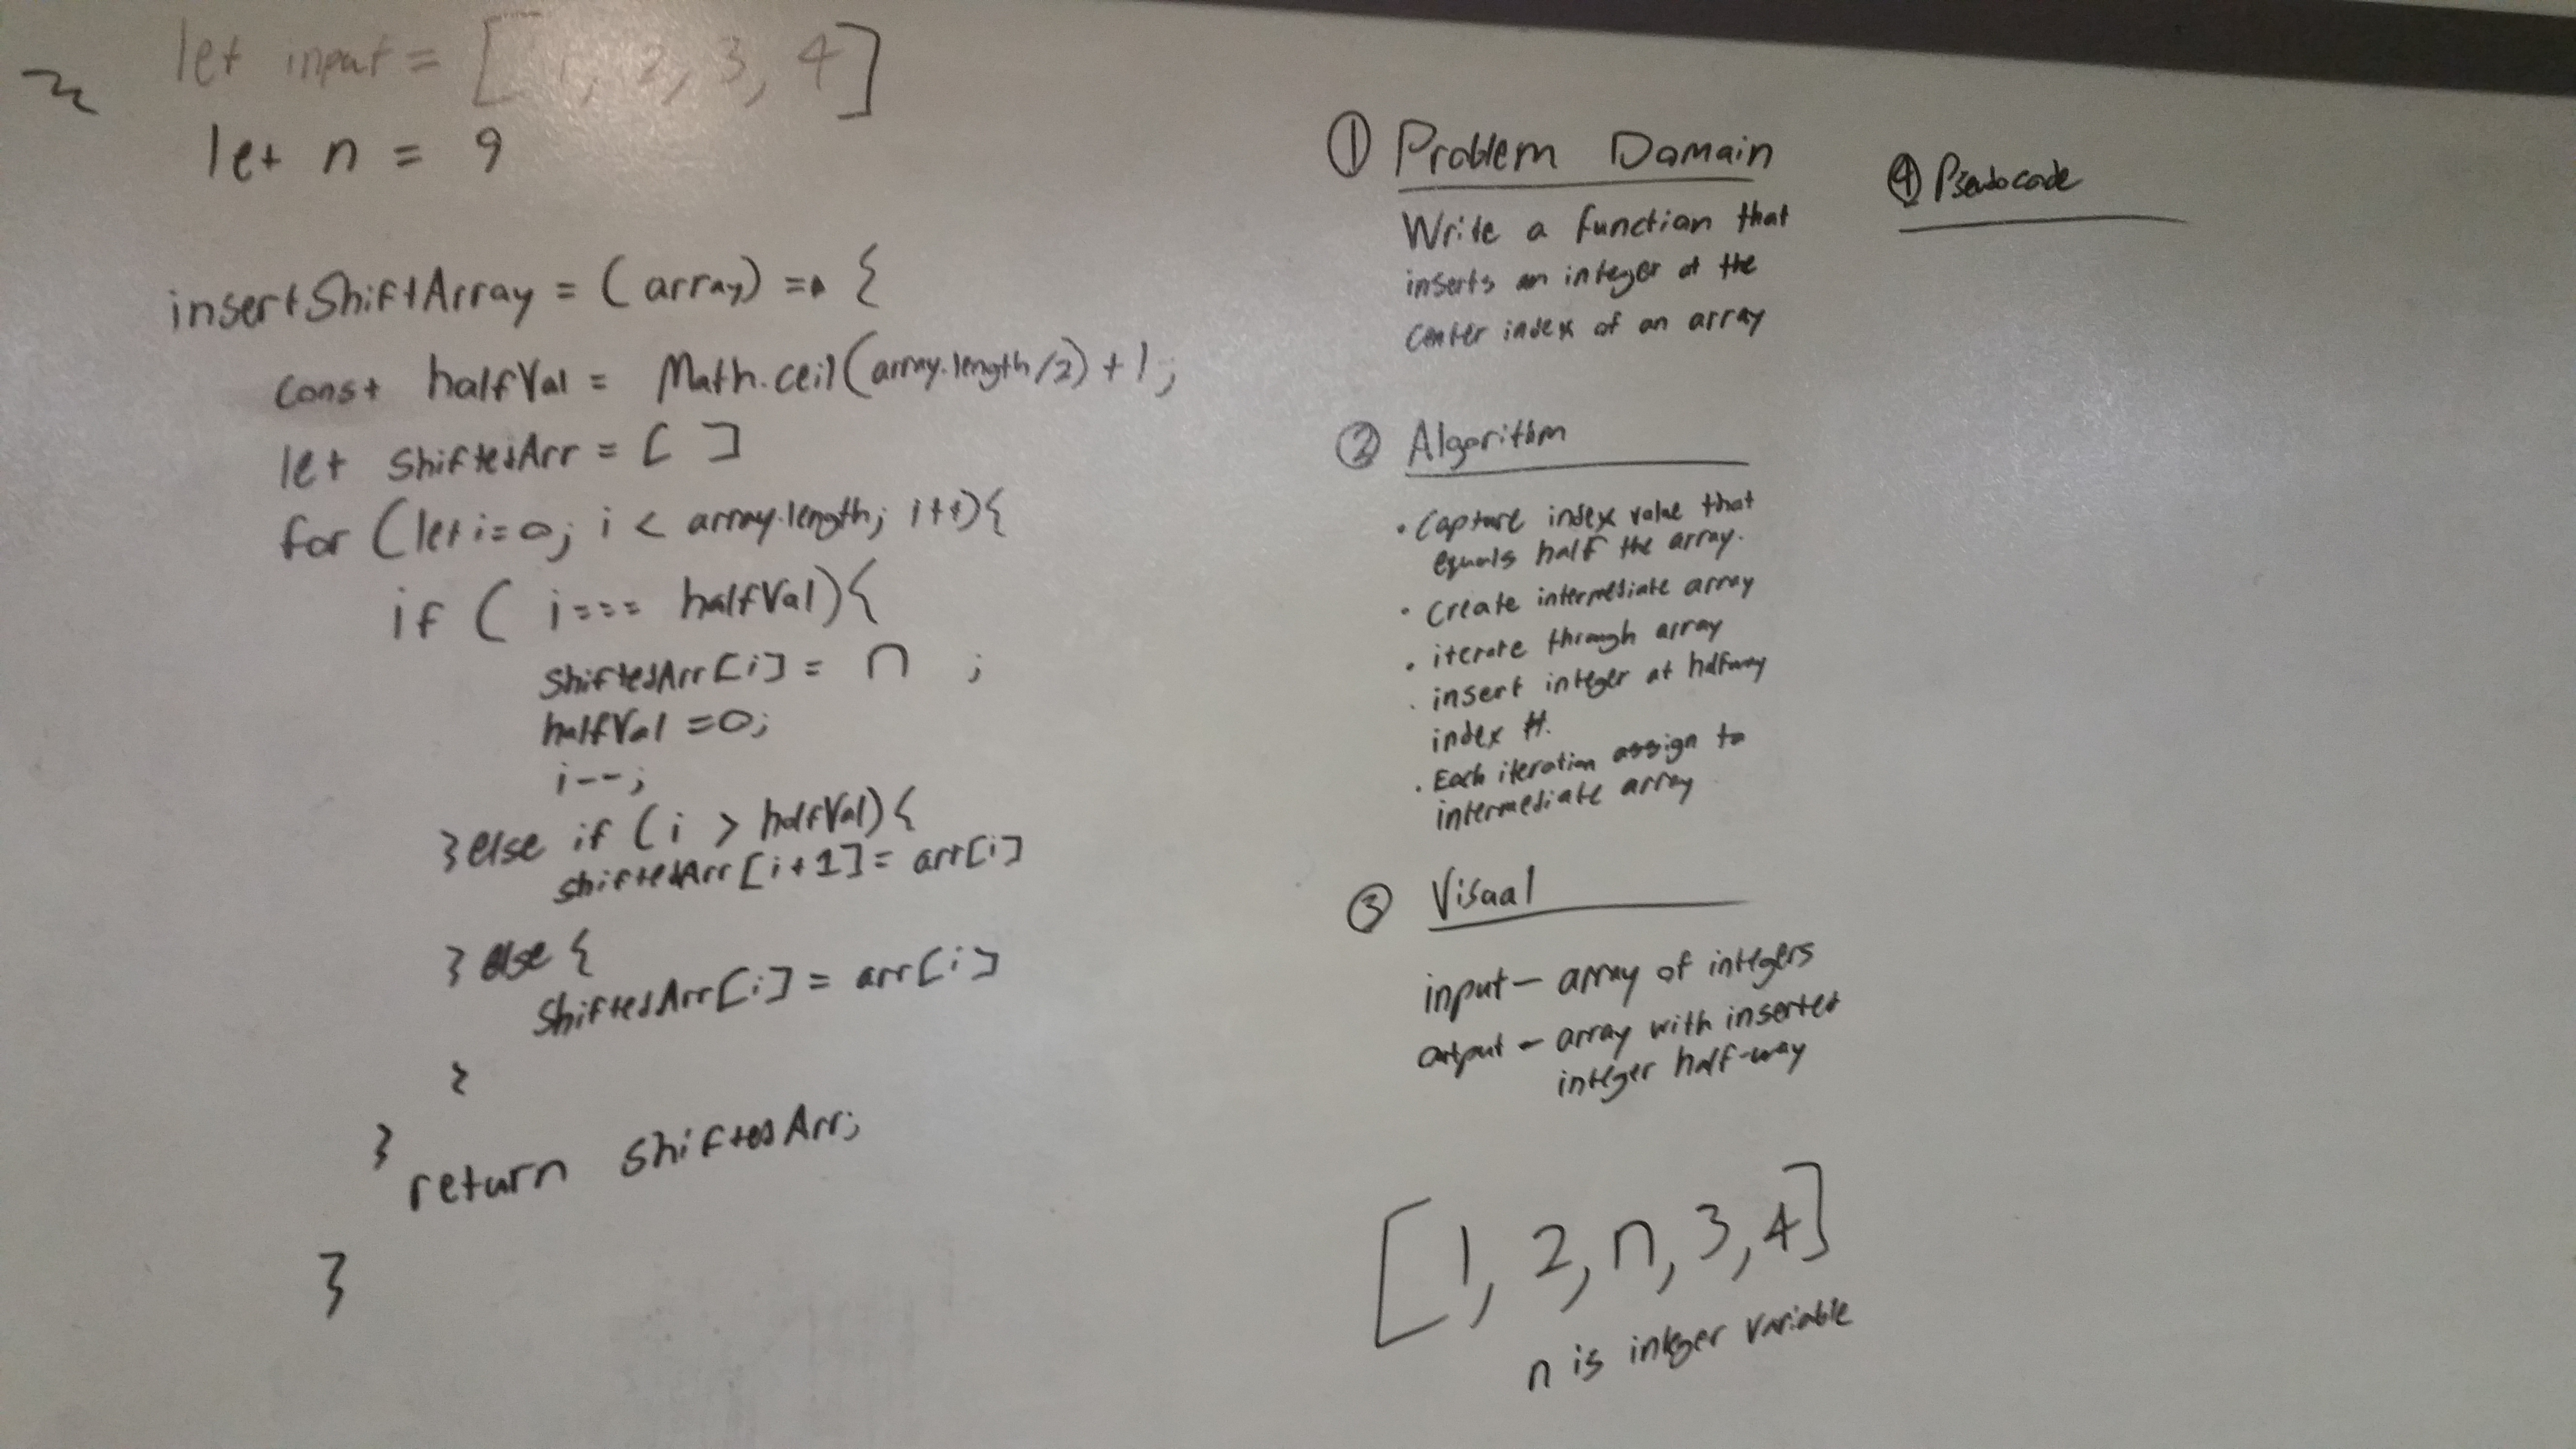 let input = [1, 2, 3, 4]
let n = 9
insertShiftArray = (array) => {
const halfVal = Math.ceil(array.length/2) + 1;
let shiftedArr = [ ]
for (let i=0; i < array.length; i++){
if ( i=== halfVal){
shiftedArr[i] = n ;
halfVal =0;
i--;
}else if (i > halfVal){
shiftedArr[i+1] = arr[i]
} else {
shiftedArr[i] = arr[i]
}
}
return shiftedArr;
}
① Problem Domain
Write a function that
inserts an integer at the
center index of an array
② Algorithm
• Capture index value that
equals half the array.
• Create intermediate array
• iterate through array
• insert integer at halfway
index #.
• Each iteration assign to
intermediate array
③ Visual
input – array of integers
output – array with inserted
integer half-way
[1, 2, n, 3, 4]
n is integer variable
④ Pseudocode